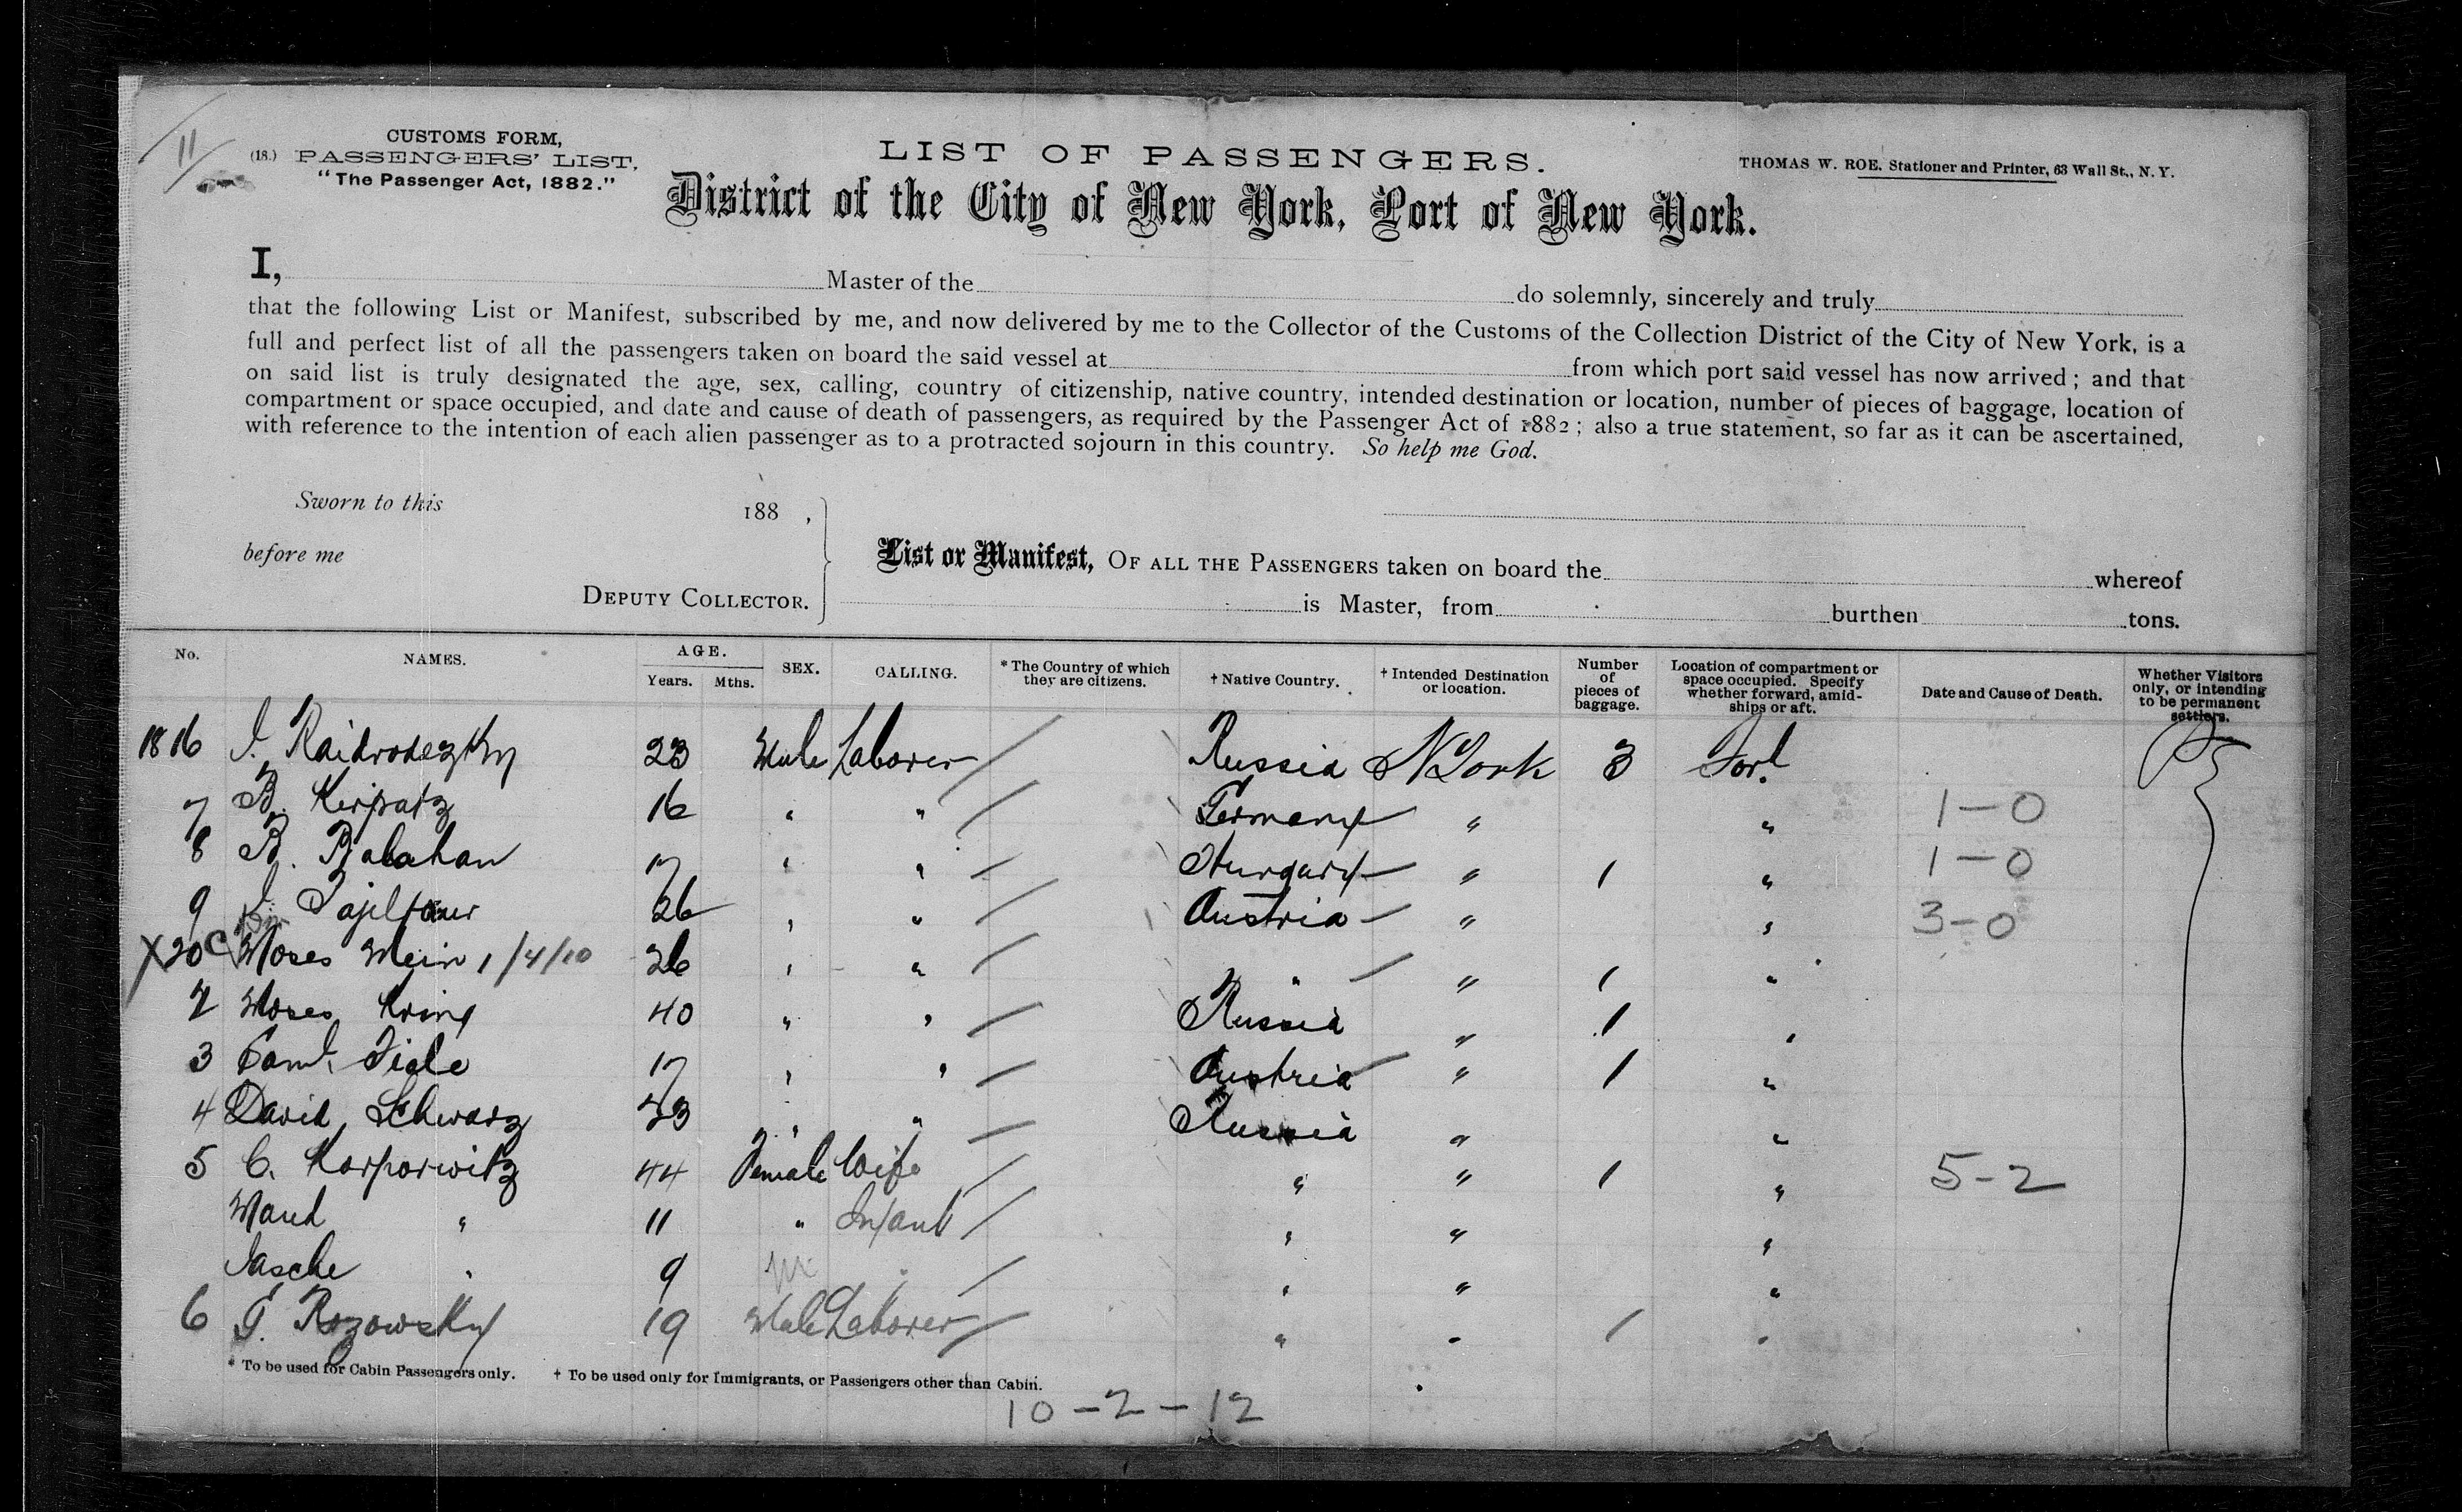 11
CUSTOMS FORM,
(18.) PASSENGERS' LIST,
"The Passenger Act, 1882."
LIST OF PASSENGERS.
THOMAS W. ROE. Stationer and Printer, 63 Wall St., N. Y.
District of the City of New York, Port of New York.
I, Master of the do solemnly, sincerely and truly
that the following List or Manifest, subscribed by me, and now delivered by me to the Collector of the Customs of the Collection District of the City of New York, is a
full and perfect list of all the passengers taken on board the said vessel at from which port said vessel has now arrived; and that
on said list is truly designated the age, sex, calling, country of citizenship, native country, intended destination or location, number of pieces of baggage, location of
compartment or space occupied, and date and cause of death of passengers, as required by the Passenger Act of 1882; also a true statement, so far as it can be ascertained,
with reference to the intention of each alien passenger as to a protracted sojourn in this country. So help me God.
Sworn to this 188 ,
before me
DEPUTY COLLECTOR.
List or Manifest, OF ALL THE PASSENGERS taken on board the whereof
is Master, from burthen tons.
No. NAMES. AGE. Years. Mths. SEX. CALLING. * The Country of which they are citizens. † Native Country. † Intended Destination or location. Number of pieces of baggage. Location of compartment or space occupied. Specify whether forward, amidships or aft. Date and Cause of Death. Whether Visitors only, or intending to be permanent settlers.
1816 J. 23 Male Laborer / Russia N York 3 Ford
7 B. Kerpatz 16 " " / Germany " " 1-0
8 B. Balahan 17 " " / Hungary " 1 " 1-0
9 J. 26 " " / Austria " " 3-0
X20 C Moses Wein 1/4/10 26 " " / " " 1 "
2 Moses Kring 40 " " / Russia " 1 "
3 Saml. 17 " " / Austria " 1 "
4 David Schwarz 23 " " / Russia " "
5 C. Karporwitz 44 Female Wife / " " 1 " 5-2
" 11 " Infant / " " "
Jasche " 9 M " / " " "
6 G. Rozowsky 19 Male Laborer / " " 1 "
* To be used for Cabin Passengers only. † To be used only for Immigrants, or Passengers other than Cabin.
10-2-12